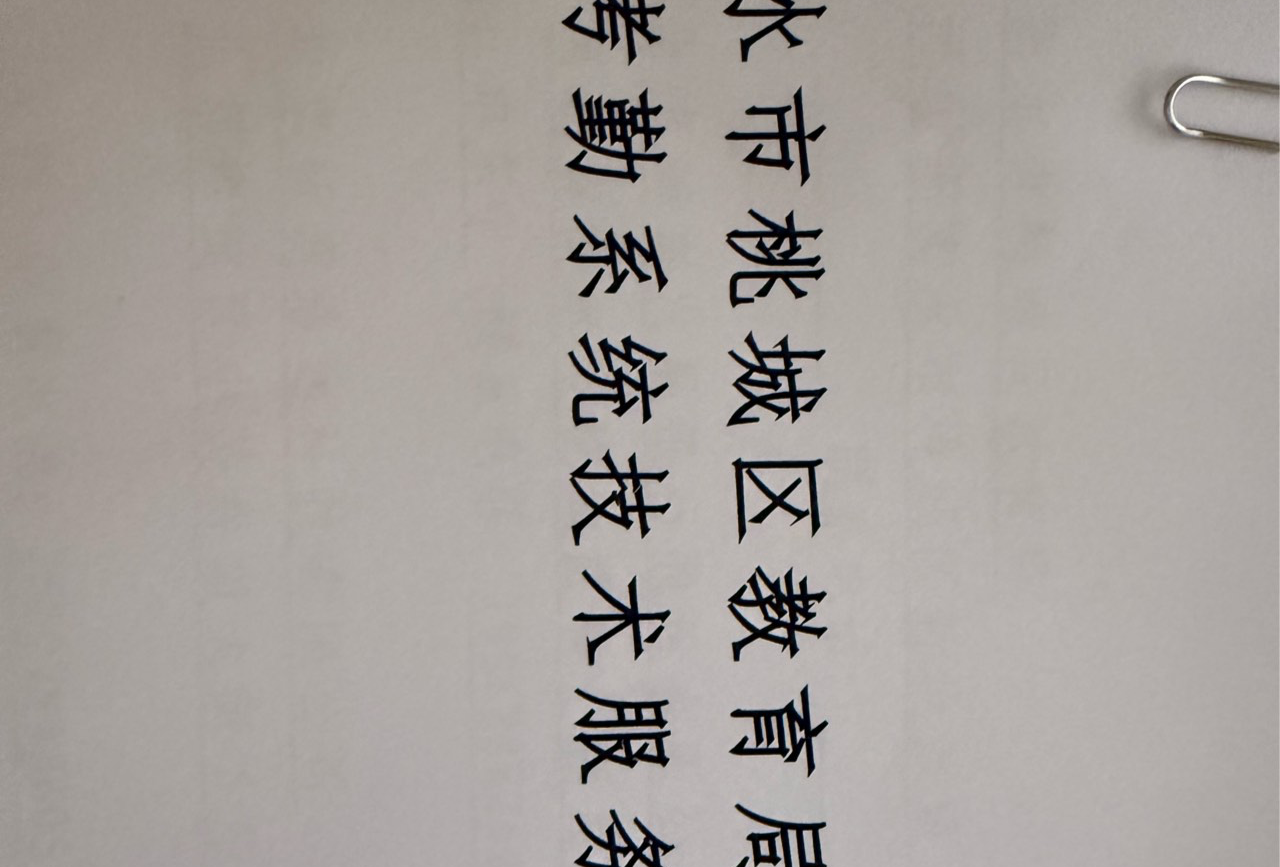 水市桃城区教育局
考勤系统技术服务